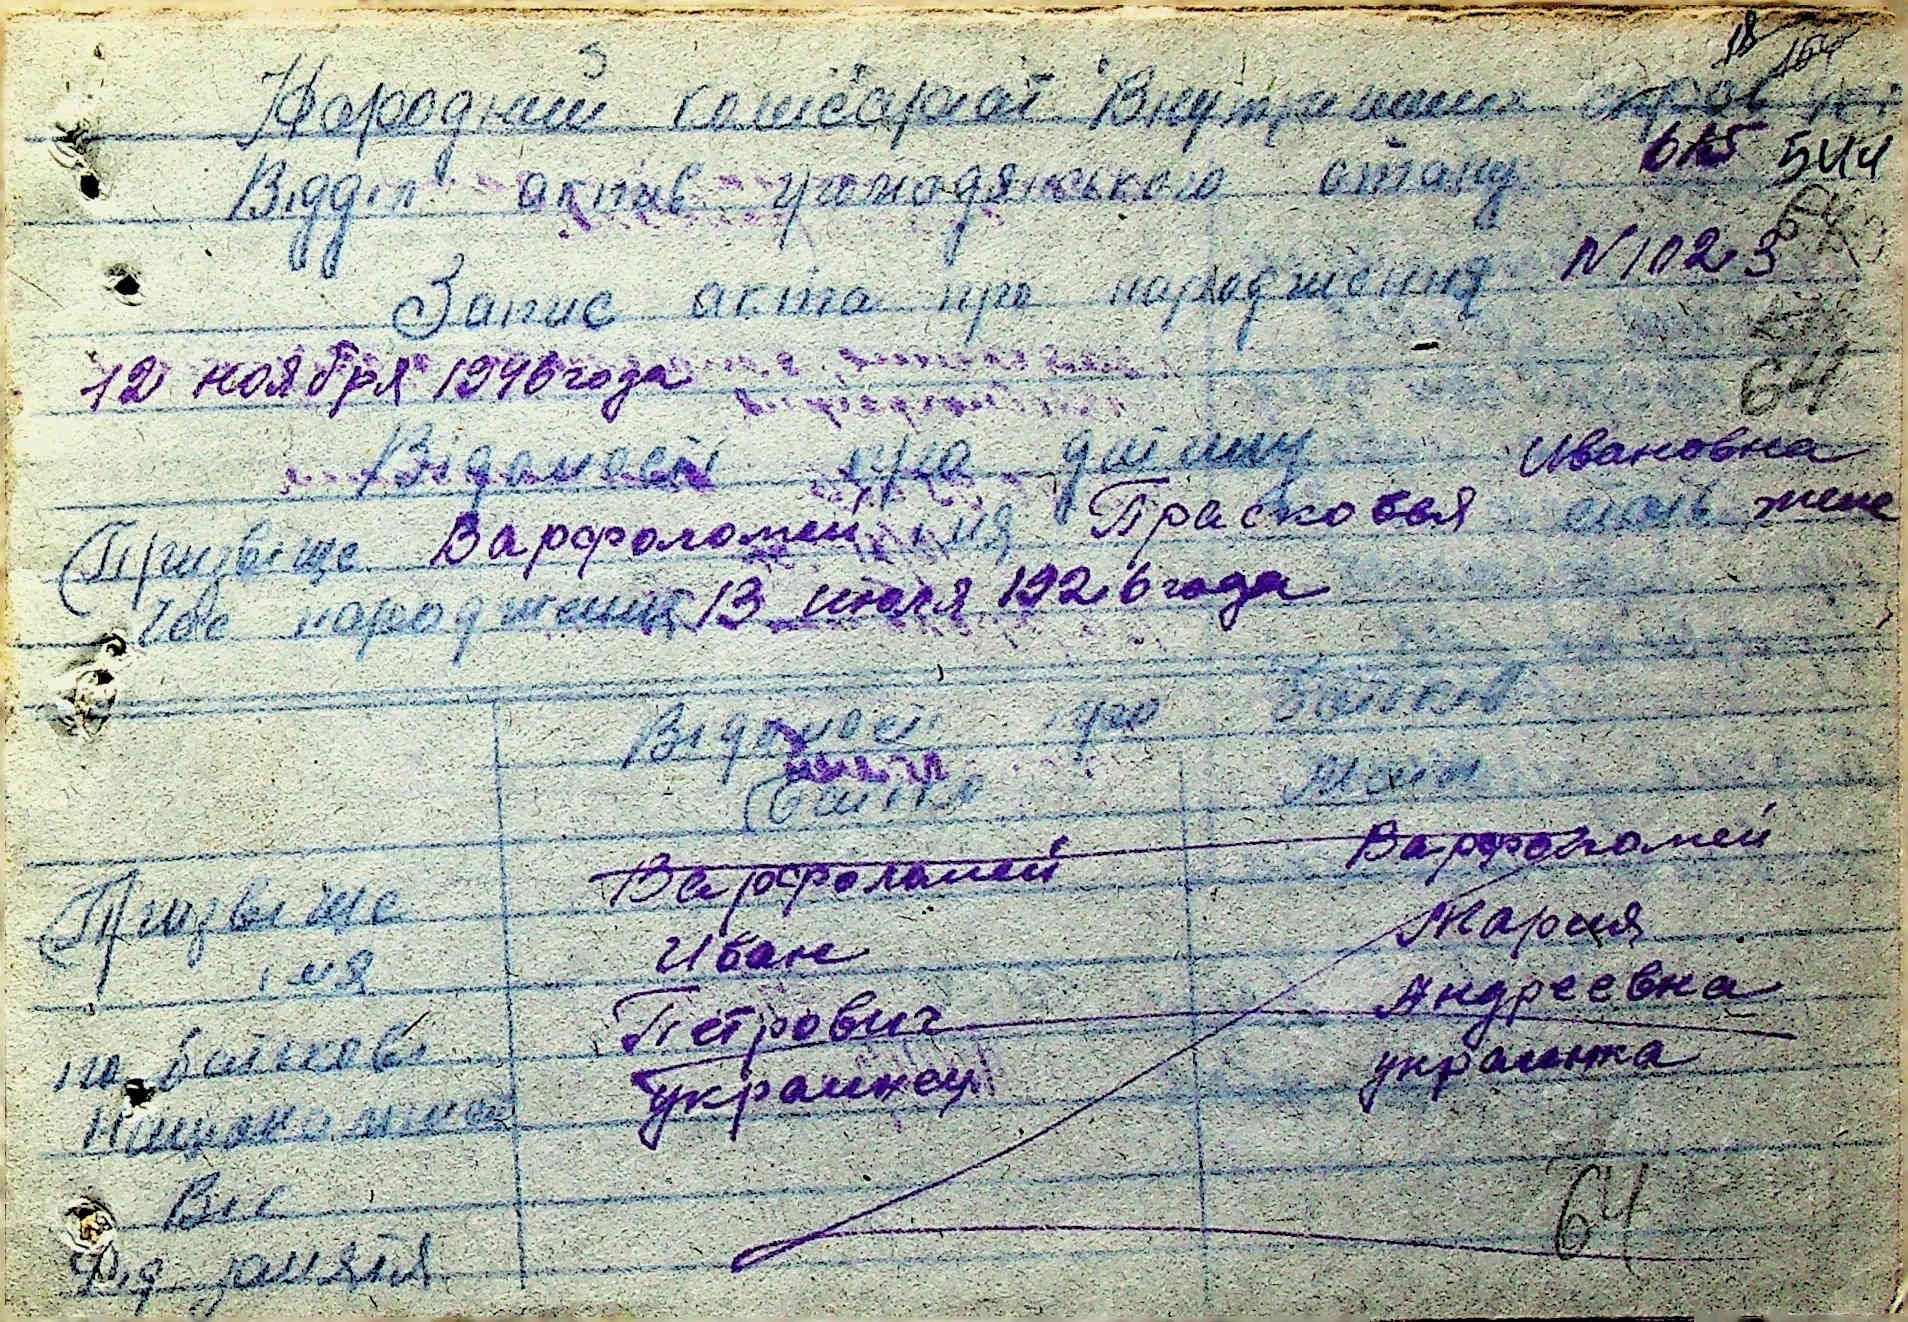 18 164
Народний комісаріат Внутрішніх справ
Відділ актів громодянського стану 544
Запис акта про народження N 1023
12 ноября 1946 года
64
Відомості про дитину Ивановна
Призвіще Варфоломей імя Прасковья стать жене
Час народження 13 июля 1926 года
Відомості про батьків
Батько Мати
Призвіще Варфоломей Варфоломей
імя Иван Мария
по батькові Петрович Андреевна
Національність украинец украинка
Вік
Рід заняття
64